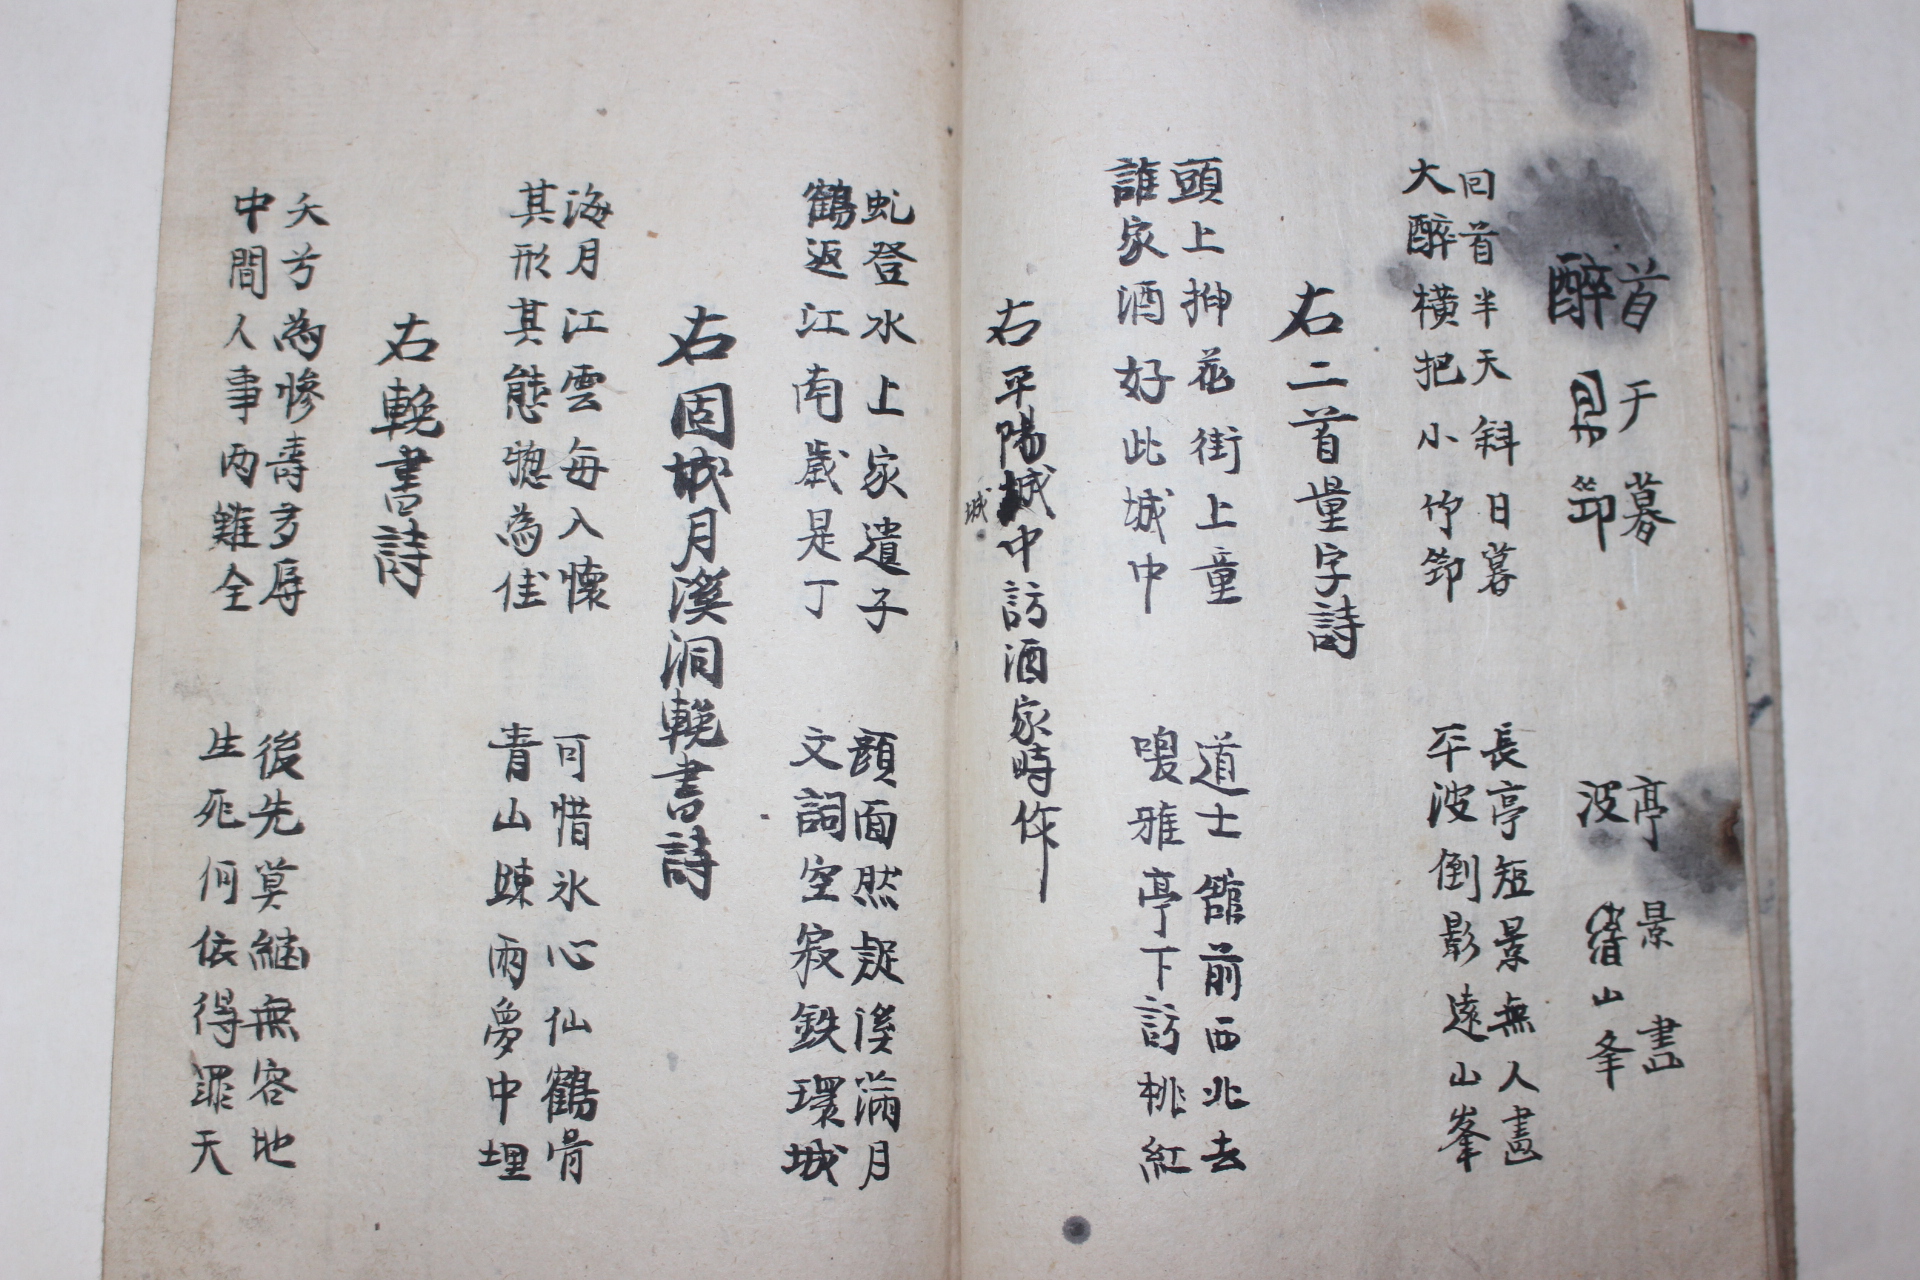 首于暮　亭景畫
醉　笻　波　山峯
回首半天斜日暮　長亭短景無人畫
大醉橫把小竹笻　平波倒影遠山峯
右二首量字詩
頭上揷花街上童　道士館前西北去
誰家酒好此城中　嗄雅亭下訪桃紅
右平陽城中訪酒家時作
城
虬登水上家遺子　顔面然疑溪滿月
鶴返江南歲是丁　文詞空寂鉄環城
右固城月溪洞輓書詩
海月江雲每入懷　可惜氷心仙鶴骨
其形其態摠為佳　青山踈雨夢中埋
右輓書詩
夭兮為慘壽多辱　後先莫緬無容地
中間人事兩難全　生死何依得罪天